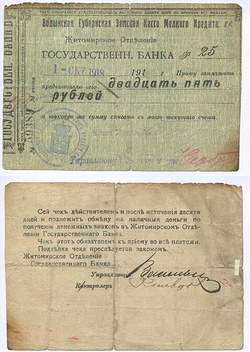 Волынская Губернская Земская Касса Мелкаго Кредита.
Житомирское Отдѣленіе
ГОСУДАРСТВЕНН. БАНКА № 25
1 - ОКТ 1918 191 г. Прошу заплатить
предъявителю сего двадцать пять
рублей
и таковую же сумму списать съ моего текущаго счета.
Сей чекъ дѣйствителенъ и послѣ истеченія десяти
дней и подлежитъ обмѣну на наличныя деньги по
полученіи денежныхъ знаковъ въ Житомирскомъ Отдѣ-
леніи Государственнаго Банка.
Чекъ этотъ обязателенъ къ пріему во всѣ платежи.
Поддѣлка чека преслѣдуется закономъ.
Житомирское Отдѣленіе
Государственнаго Банка.
Управляющій
Контролеръ